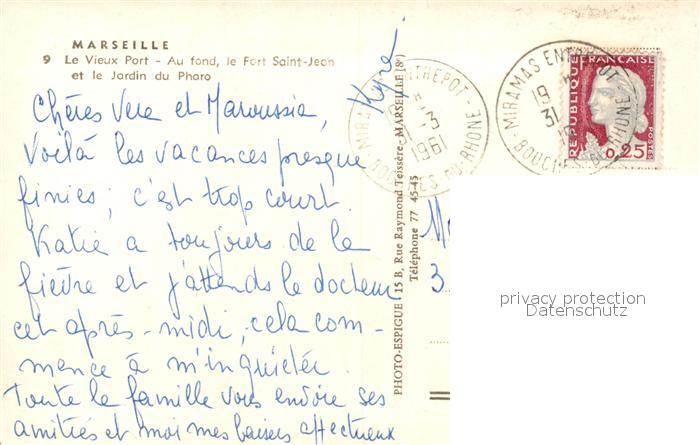 MARSEILLE
9 Le Vieux Port - Au fond, le Fort Saint-Jean
et le Jardin du Pharo
Chères Vera et Maroussia,
Voilà les vacances presque
finies; c'est trop court.
Katie a toujours de la
fièvre et j'attends le docteur
cet après-midi, cela com-
mence à m'inquiéter.
Toute la famille vous envoie ses
amitiés et moi mes baisers affectueux
Kyra
PHOTO-ESPIGUE 15 B, Rue Raymond Teissère - MARSEILLE (8e)
Téléphone 77 45-45
MIRAMAS ENTREPOT
19
3
1961
BOUCHES DU RHONE
MIRAMAS ENTREPOT
19
31
BOUCHES DU RHONE
REPUBLIQUE FRANÇAISE
0,25
POSTES
3
privacy protection
Datenschutz